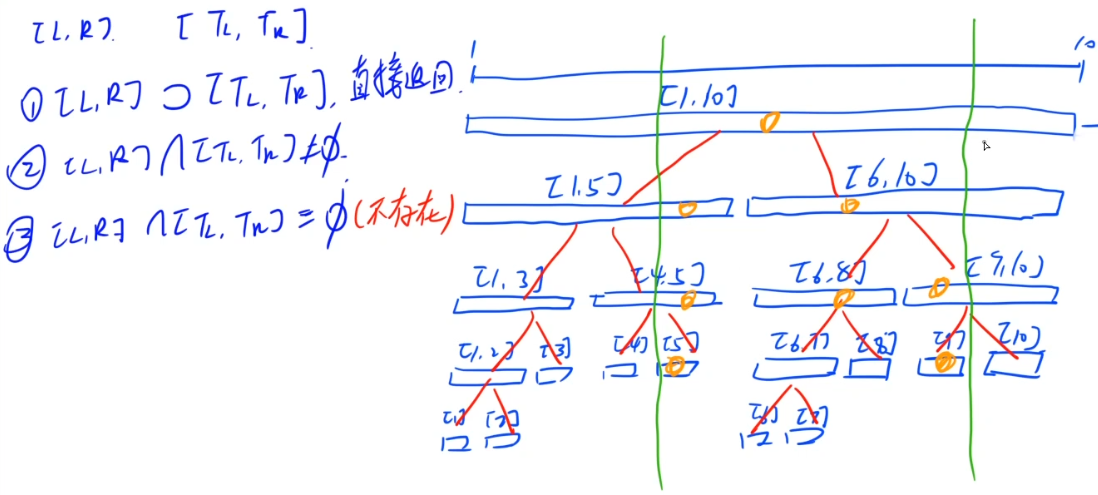 [L,R]. [TL, TR].
① [L,R] ⊃ [TL, TR], 直接返回.
② [L,R] ∩ [TL, TR] ≠ ∅.
③ [L,R] ∩ [TL, TR] = ∅ (不存在)
1 10
[1,10]
[1,5] [6,10]
[1,3] [4,5] [6,8] [9,10]
[1,2] [3] [4] [5] [6,7] [8] [9] [10]
[1] [2] [6] [7]